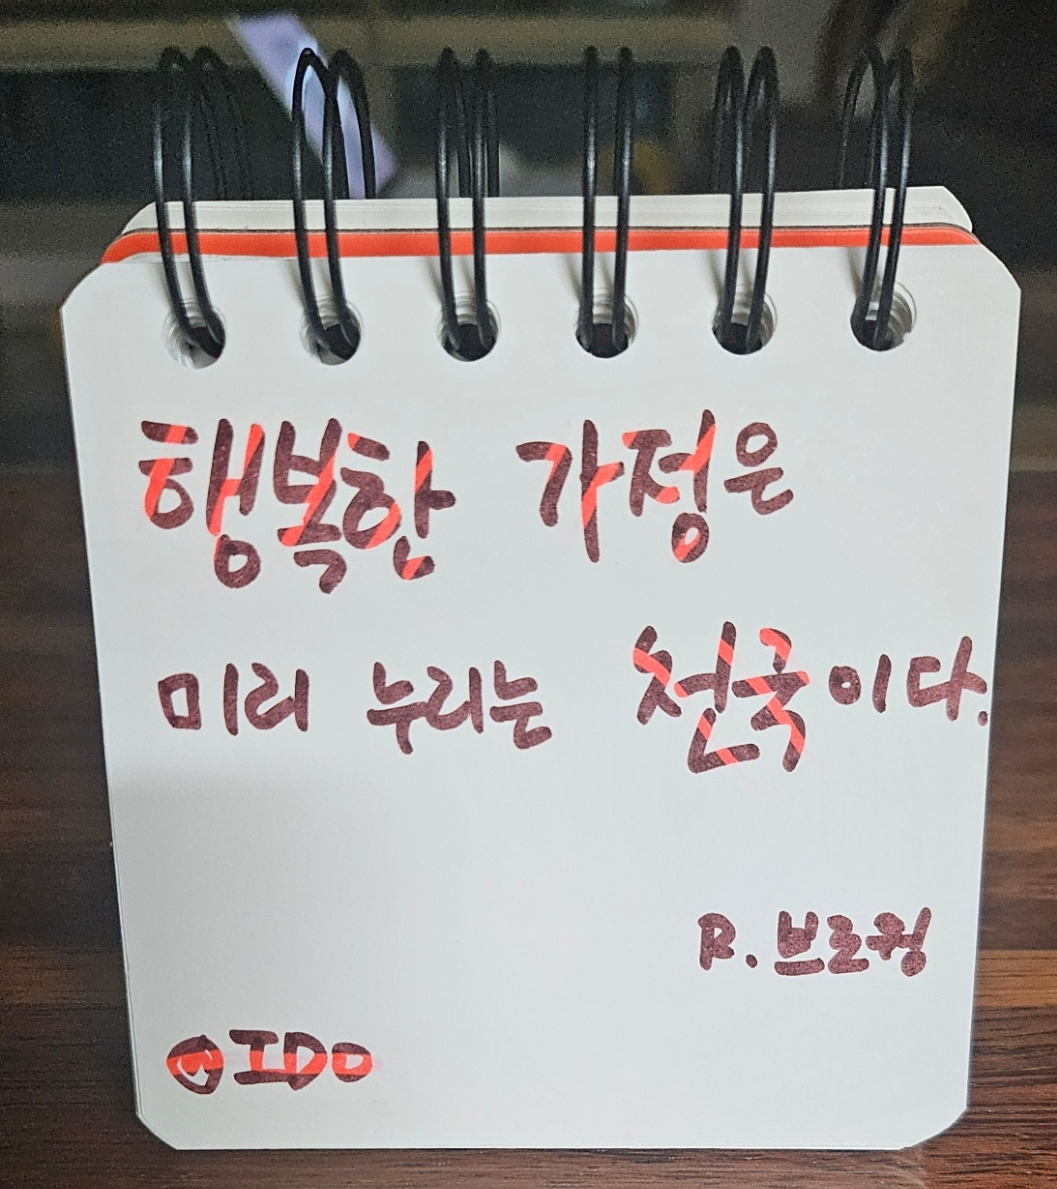 행복한 가정은
미리 누리는 천국이다.
R. 브로윙
@IDO